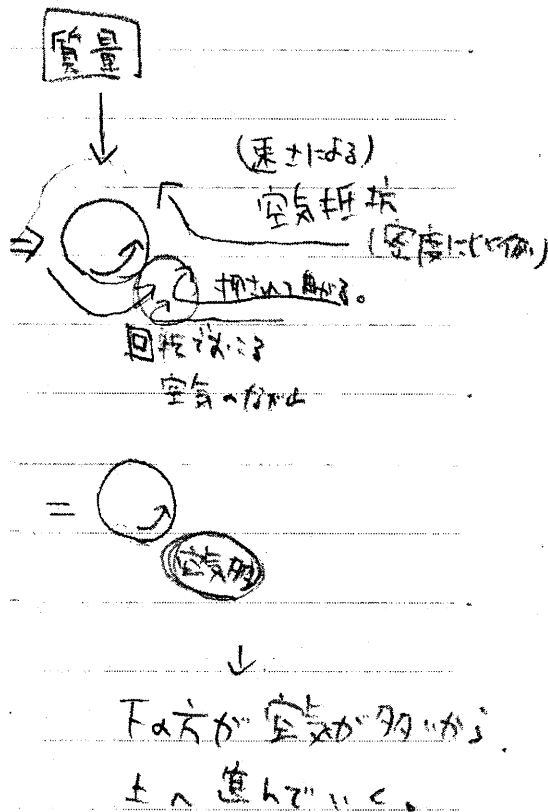 質量
(速さによる)
空気抵抗
(密度に比例)
押されて曲がる。
回転でおこる
空気の流れ
=
空気多
↓
下の方が空気が多いから
上へ進んでいく。